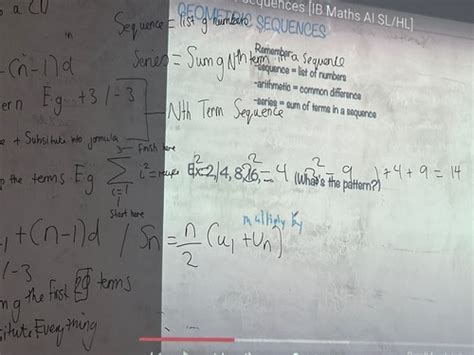 equences [IB Maths AI SL/HL]
GEOMETRIC SEQUENCES
Sequence = list of numbers
Series = Sum of Nth term in a sequence
Remember:
-sequence = list of numbers
-arithmetic = common difference
-series = sum of terms in a sequence
-(n-1)d
ern E.g. +3 / -3
Nth Term Sequence
e + Substitute into formula
Finish here
3
p the terms E.g Σ i² =
i=1
Start here
Ex: 2, 4, 8, 16, ... (What's the pattern?)
+ 4 + 9 = 14
multiply by
+(n-1)d / Sn = n/2 (u₁ + Un)
/-3
ng the first 20 terms
itute Everything